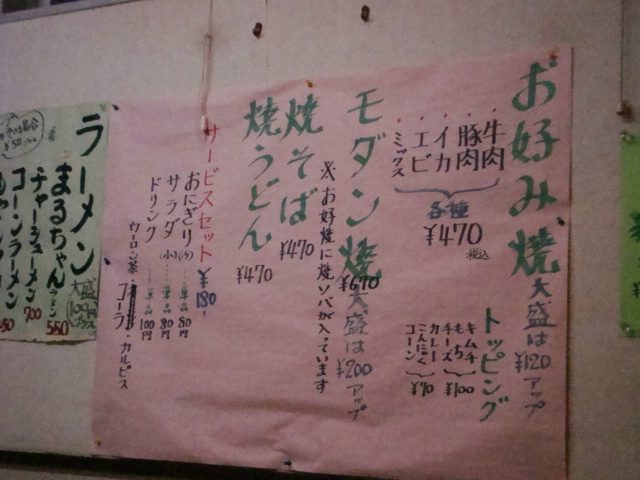 お好み焼
大盛は
¥120アップ
・牛肉
・豚肉
・イカ
・エビ
・ミックス
各種
¥470
税込
トッピング
キムチ
もち
チーズ
¥100
カレー
こんにゃく
コーン
¥70
モダン焼
¥670
大盛は
¥200アップ
※お好焼に焼ソバが入っています
焼そば
¥470
焼うどん
¥470
サービスセット ¥180
おにぎり(小)……単品80円
サラダ(小)……単品80円
ドリンク……単品100円
ウーロン茶・コーラ・カルピス
ラーメン
まるちゃんラーメン 550
大盛100円プラス
チャーシューメン 700
コーンラーメン
¥50